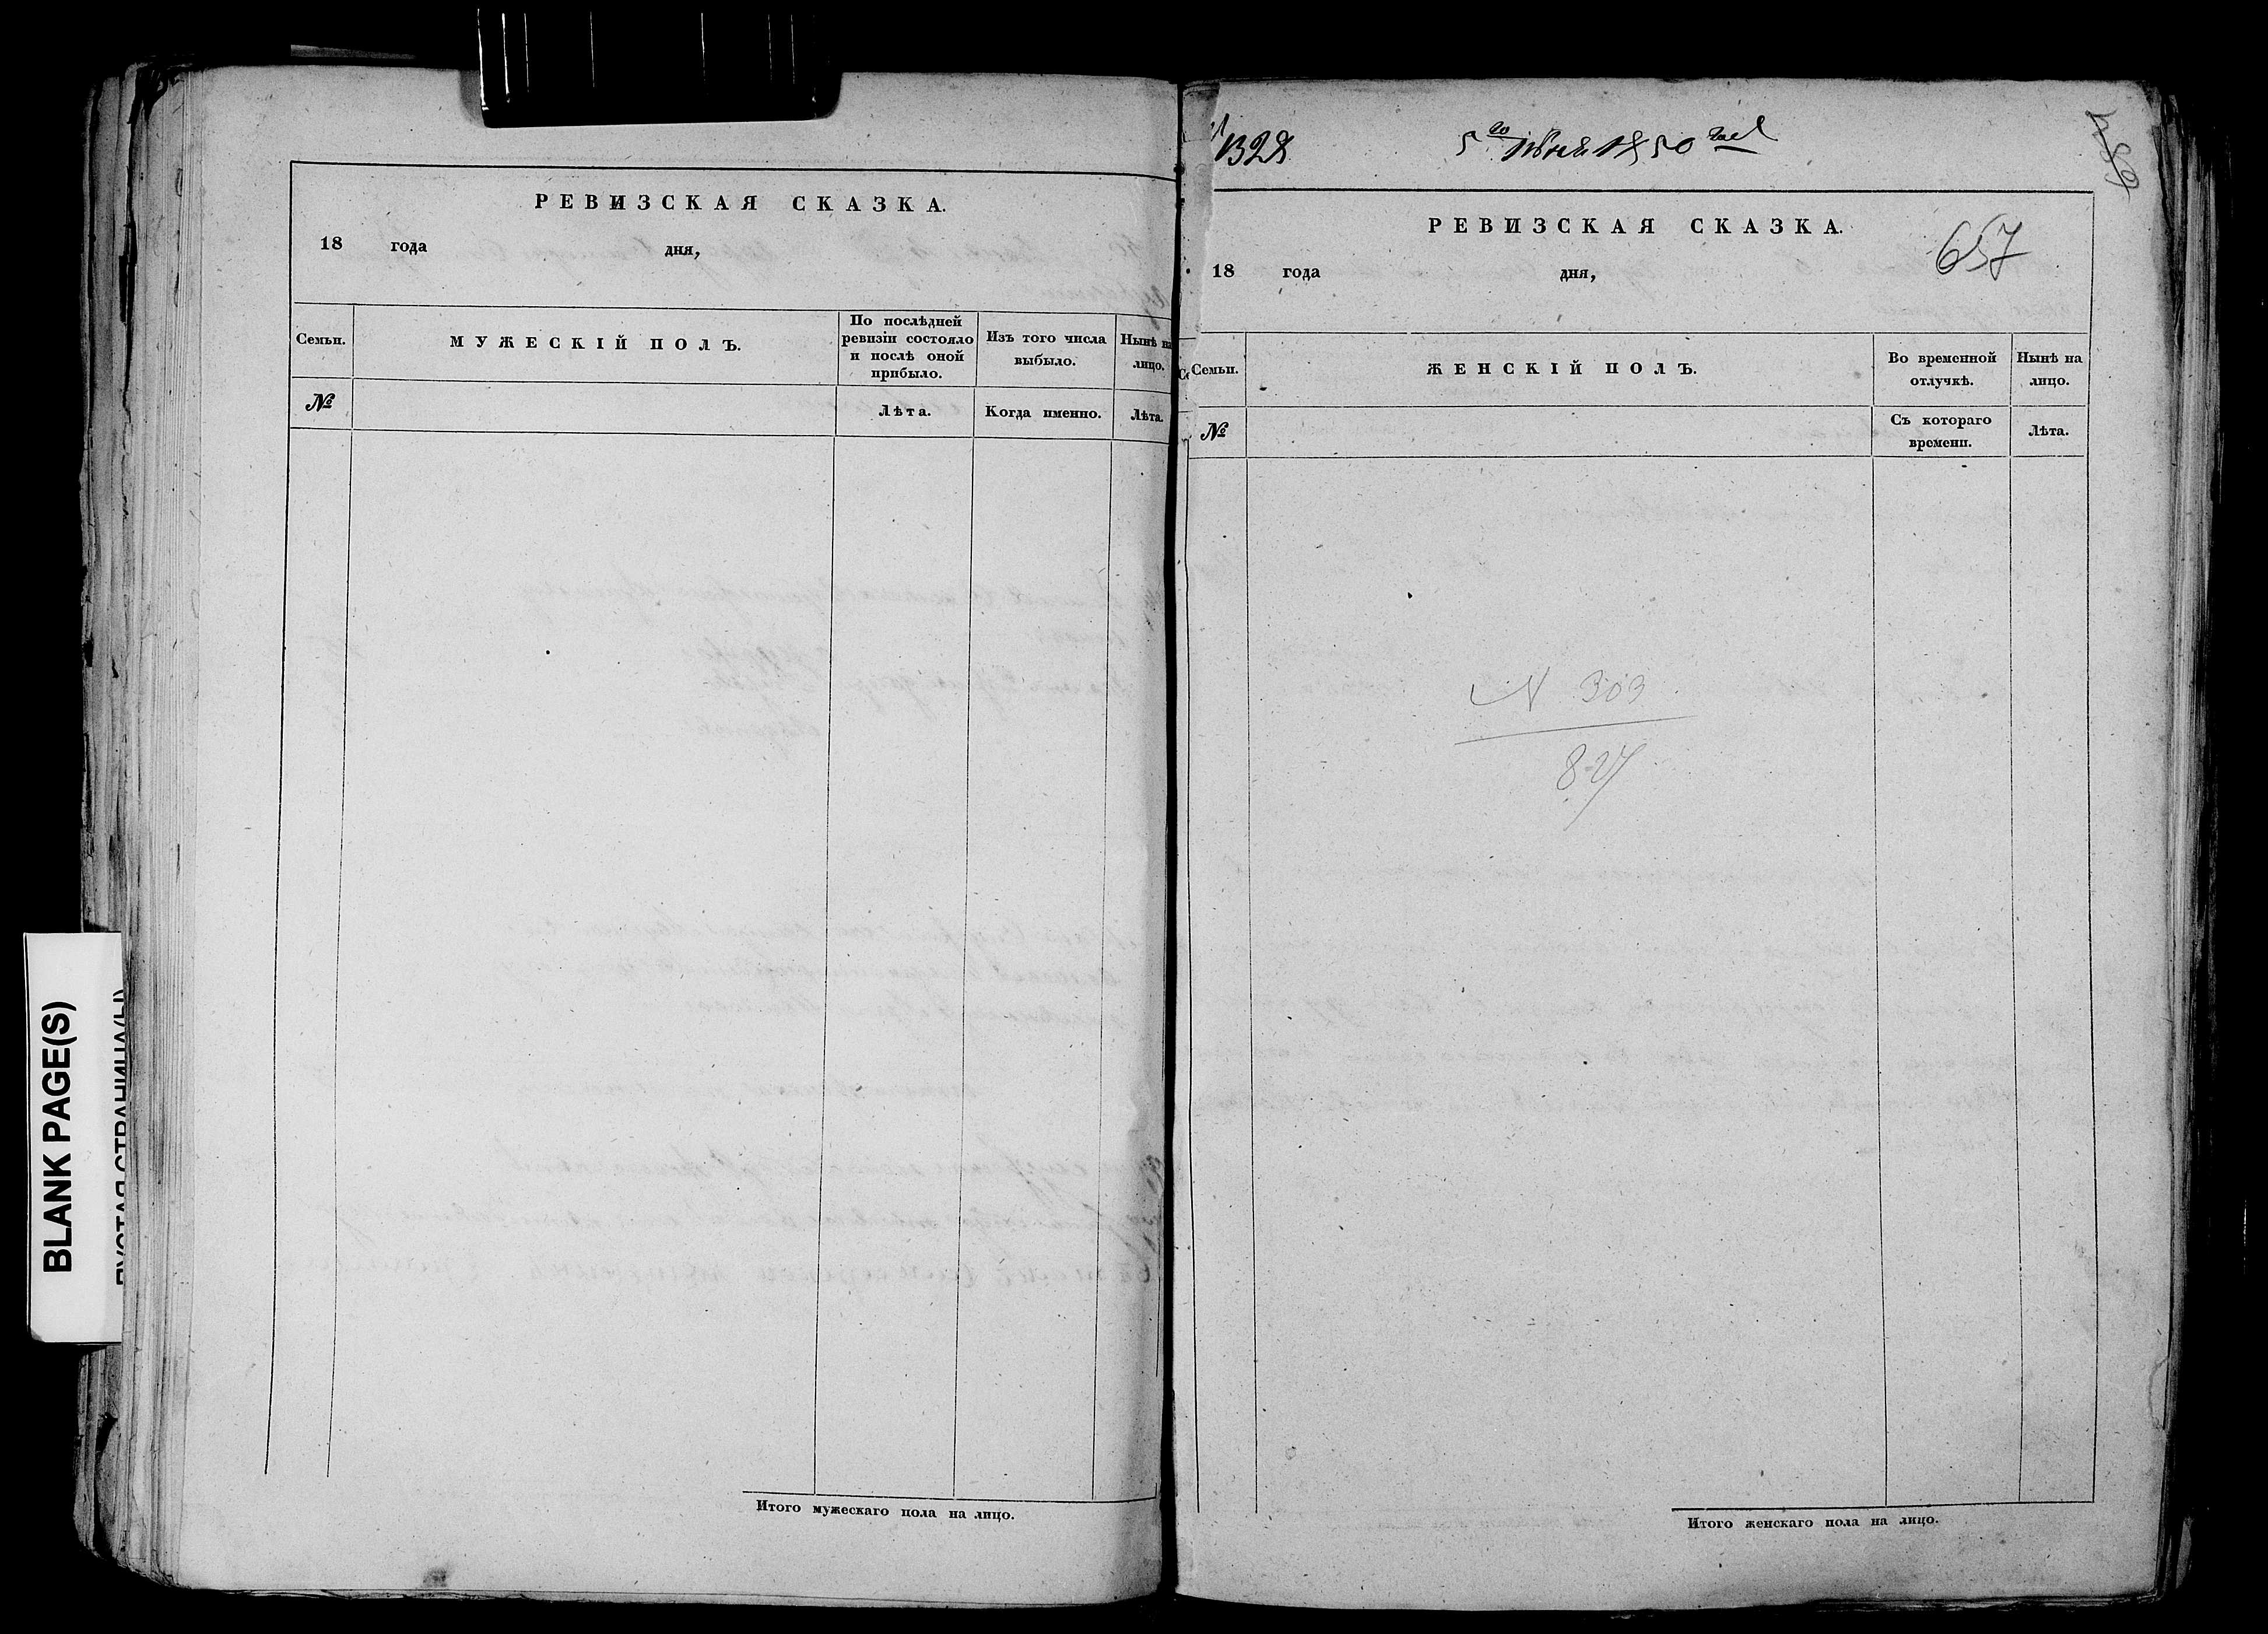 BLANK PAGE(S)
РЕВИЗСКАЯ СКАЗКА.
18 года дня,
Семьи.
МУЖЕСКІЙ ПОЛЪ.
По послѣдней
ревизіи состояло
и послѣ оной
прибыло.
Изъ того числа
выбыло.
Нынѣ на
лицо.
№
Лѣта.
Когда именно.
Лѣта.
Итого мужескаго пола на лицо.
1328
5го Июня 1850
657
РЕВИЗСКАЯ СКАЗКА.
657
18 года дня,
Семьи.
ЖЕНСКІЙ ПОЛЪ.
Во временной
отлучкѣ.
Нынѣ на
лицо.
№
Съ котораго
времени.
Лѣта.
N 303
827
Итого женскаго пола на лицо.